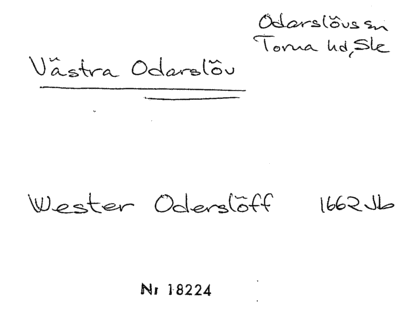 Odarslövs sn
Torna hd, Sk
Västra Odarslöv
Wester Oderslöff 1662 Jb
Nr 18224